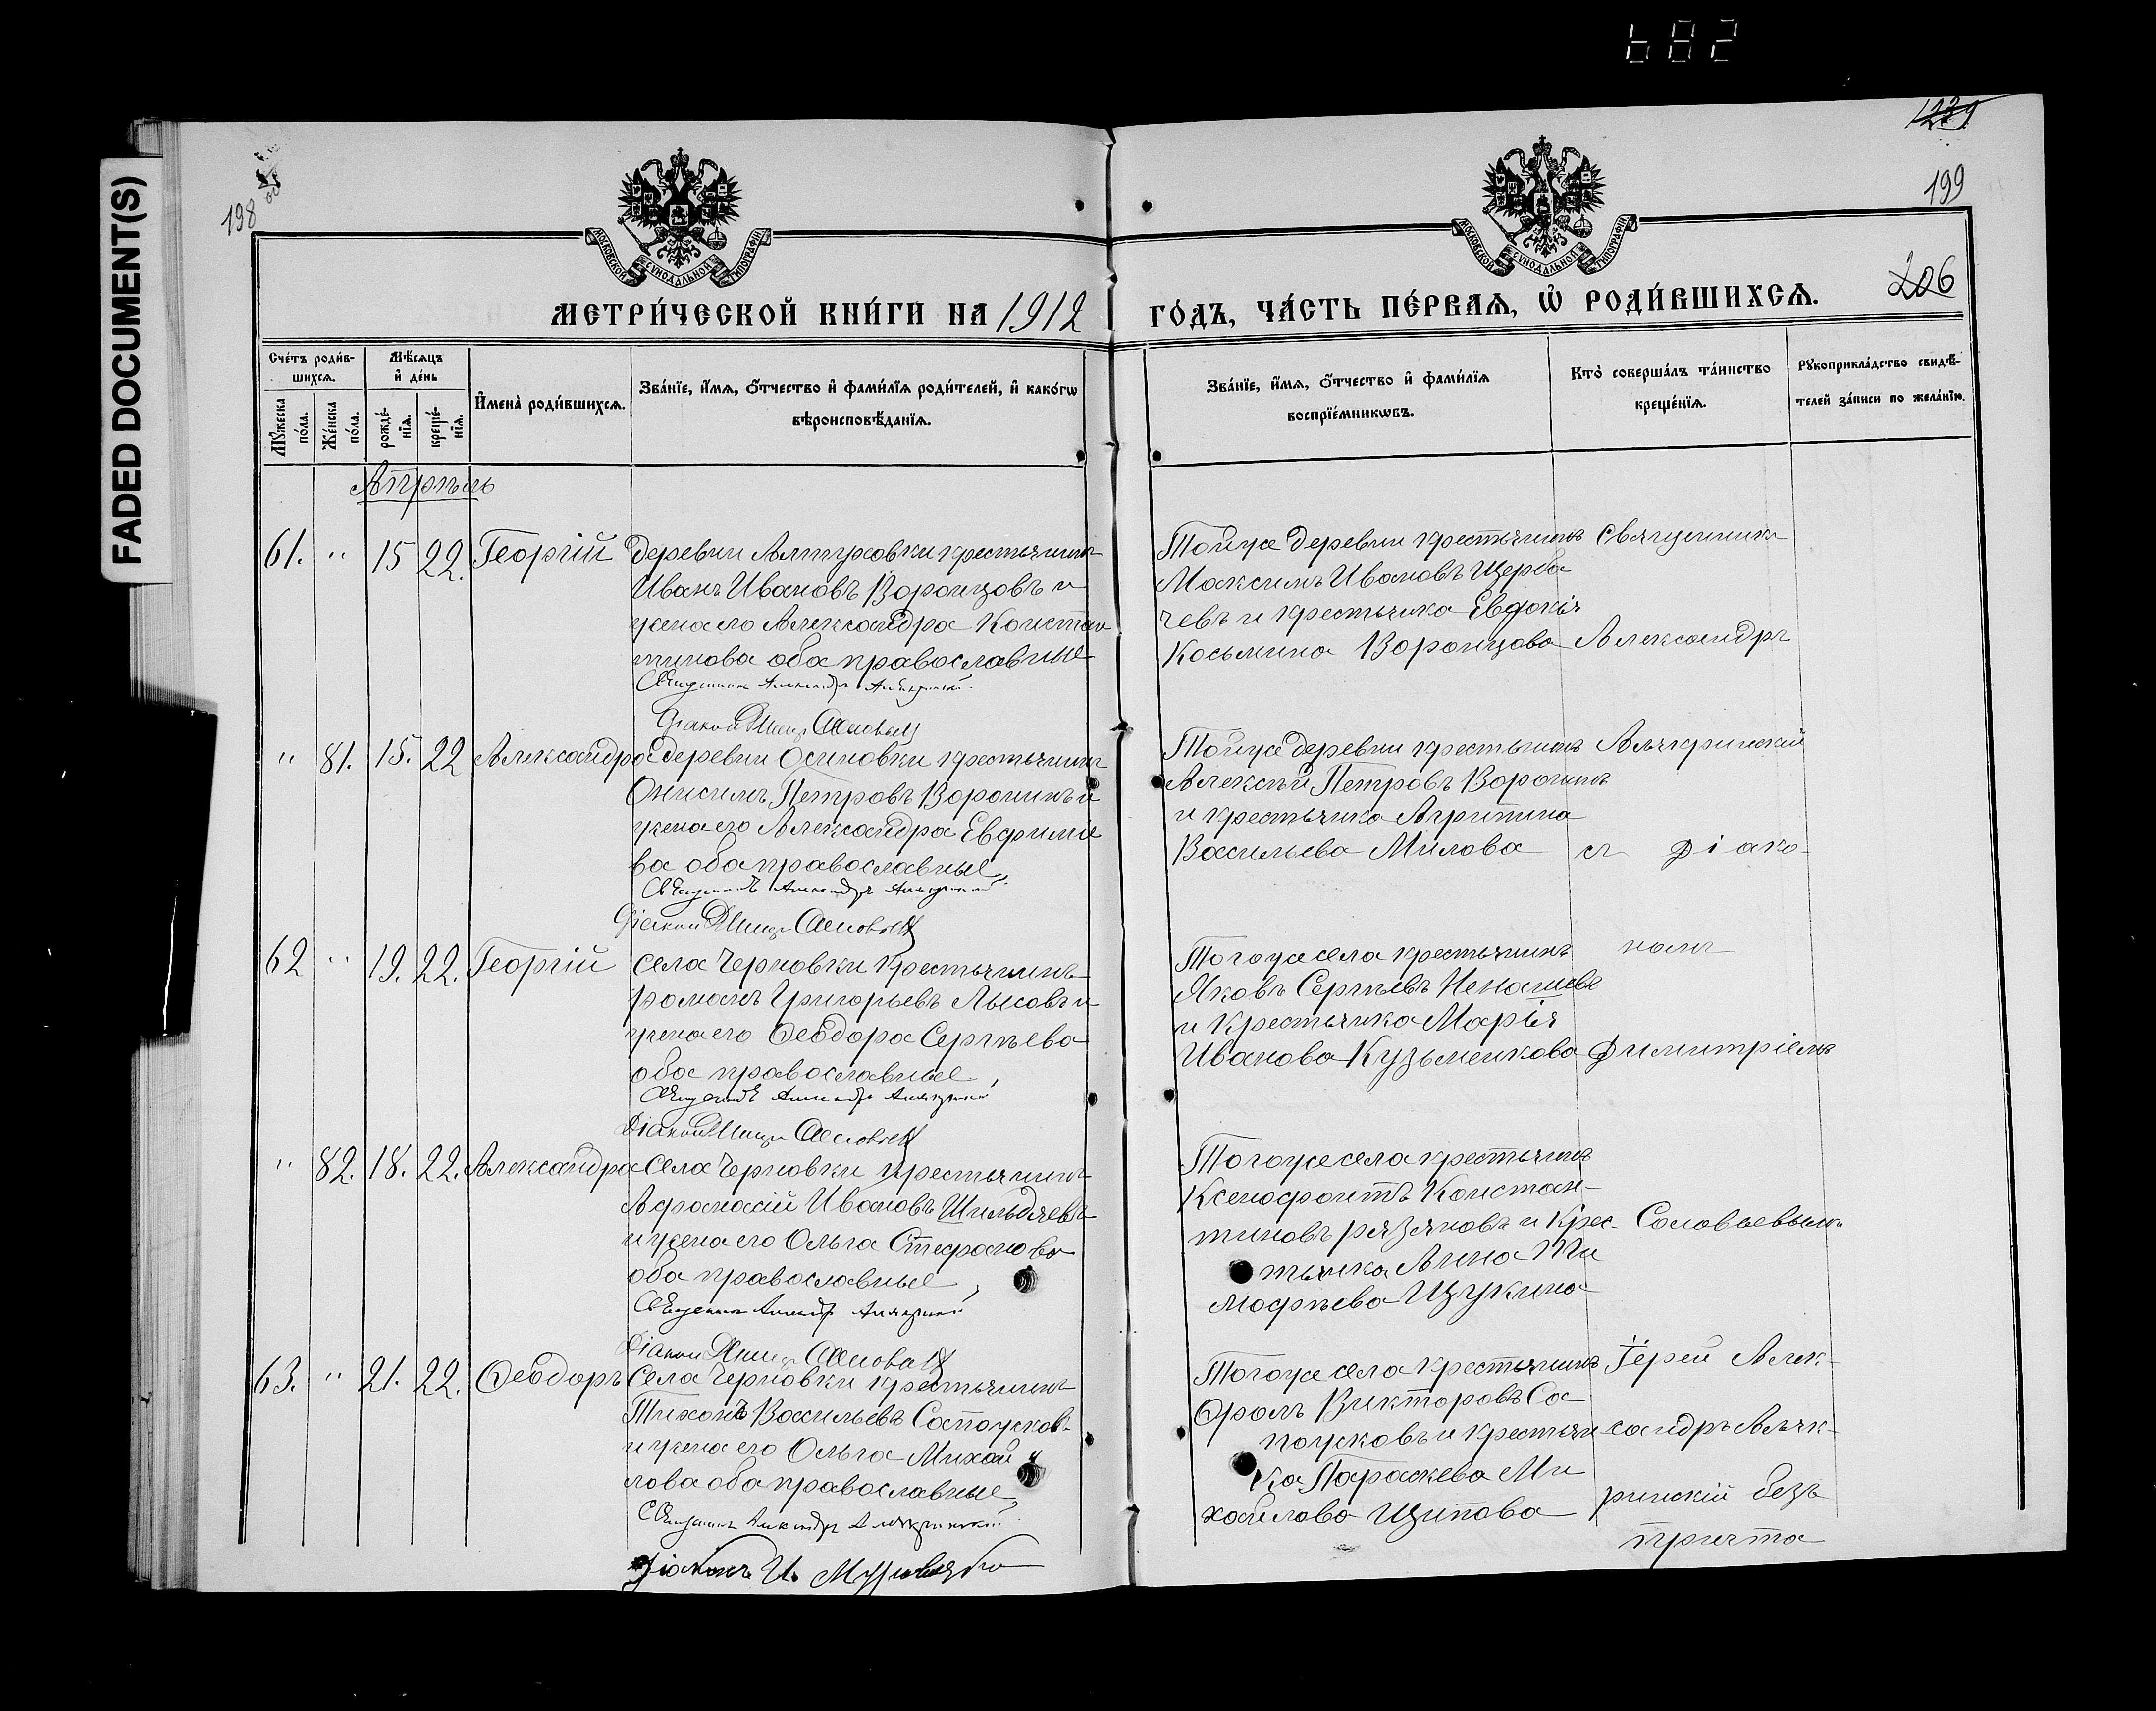 682
FADED DOCUMENT(S)
198
1239
199
206
МОСКОВСКОЙ СѴНОДАЛЬНОЙ ТИПОГРАФІИ
МОСКОВСКОЙ СѴНОДАЛЬНОЙ ТИПОГРАФІИ
МЕТРИ́ЧЕСКОЙ КНИ́ГИ НА 1912 ГО́ДЪ, ЧА́СТЬ ПЕ́РВАѦ, Ѡ҆ РОДИ́ВШИХСѦ.
Сче́тъ роди́в-
шихсѧ.
Мѣ́сѧцъ
и҆ де́нь
Мꙋ́жеска
по́ла.
Же́нска
по́ла.
рожде́-
нїѧ.
креще́-
нїѧ.
И҆мена̀ роди́вшихсѧ.
Зва́нїе, и҆́мѧ, ѻ҆́тчество и҆ фами́лїѧ роди́телей, и҆ како́гѡ
вѣроисповѣ́данїѧ.
Зва́нїе, и҆́мѧ, ѻ҆́тчество и҆ фами́лїѧ
воспрїе́мникѡвъ.
Кто̀ соверша́лъ та́инство
креще́нїѧ.
Рꙋкоприкла́дство свидѣ́-
телей за́писи по жела́нїю.
Апрѣль
61. " 15 22. Георгій
деревни Алтуховки крестьянинъ
Иванъ Ивановъ Воронцовъ и
жена его Александра Констан
тинова оба православные
Священникъ Александръ Алякринскій
Діаконъ Соловьевъ
Тойже деревни крестьянинъ
Максимъ Ивановъ Щерба
чевъ и крестьянка Евдокія
Косьмина Воронцова
Священникъ
Александръ
" 81. 15. 22 Александра
деревни Осиновки крестьянинъ
Онисимъ Петровъ Воронинъ и
жена его Александра Евфиміе
ва оба православные
Священникъ Александръ Алякринскій
Діаконъ Соловьевъ
Тойже деревни крестьянинъ
Алексѣй Петровъ Воронинъ
и крестьянка Агрипина
Васильева Милова
Алякринскій
съ діако-
62 " 19. 22. Георгій
села Черновки крестьянинъ
Романъ Григорьевъ Лысовъ и
жена его Ѳеодора Сергѣева
оба православные
Священникъ Александръ Алякринскій
Діаконъ Соловьевъ
Тогоже села крестьянинъ
Яковъ Сергѣевъ Ненашевъ
и крестьянка Марія
Иванова Кузьменкова
номъ
Димитріемъ
" 82. 18. 22. Александра
села Черновки крестьянинъ
Афанасій Ивановъ Шильдяевъ
и жена его Ольга Стефанова
оба православные
Священникъ Александръ Алякринскій
Діаконъ Соловьевъ
Тогоже села крестьянинъ
Ксенофонтъ Констан-
тиновъ Рязяновъ и крес-
тьянка Анна Ти
мофѣева Щукина
Соловьевымъ
63. " 21. 22. Ѳеодоръ
села Черновки крестьянинъ
Тихонъ Васильевъ Сапожков
и жена его Ольга Михай
лова оба православные
Священникъ Александръ Алякринскій
Діаконъ И.
Тогоже села крестьянинъ
Фролъ Викторовъ Са
пожковъ и крестьян
ка Параскева Ми
хайлова Щипова
Іерей Алек-
сандръ Аляк-
ринскій безъ
причта